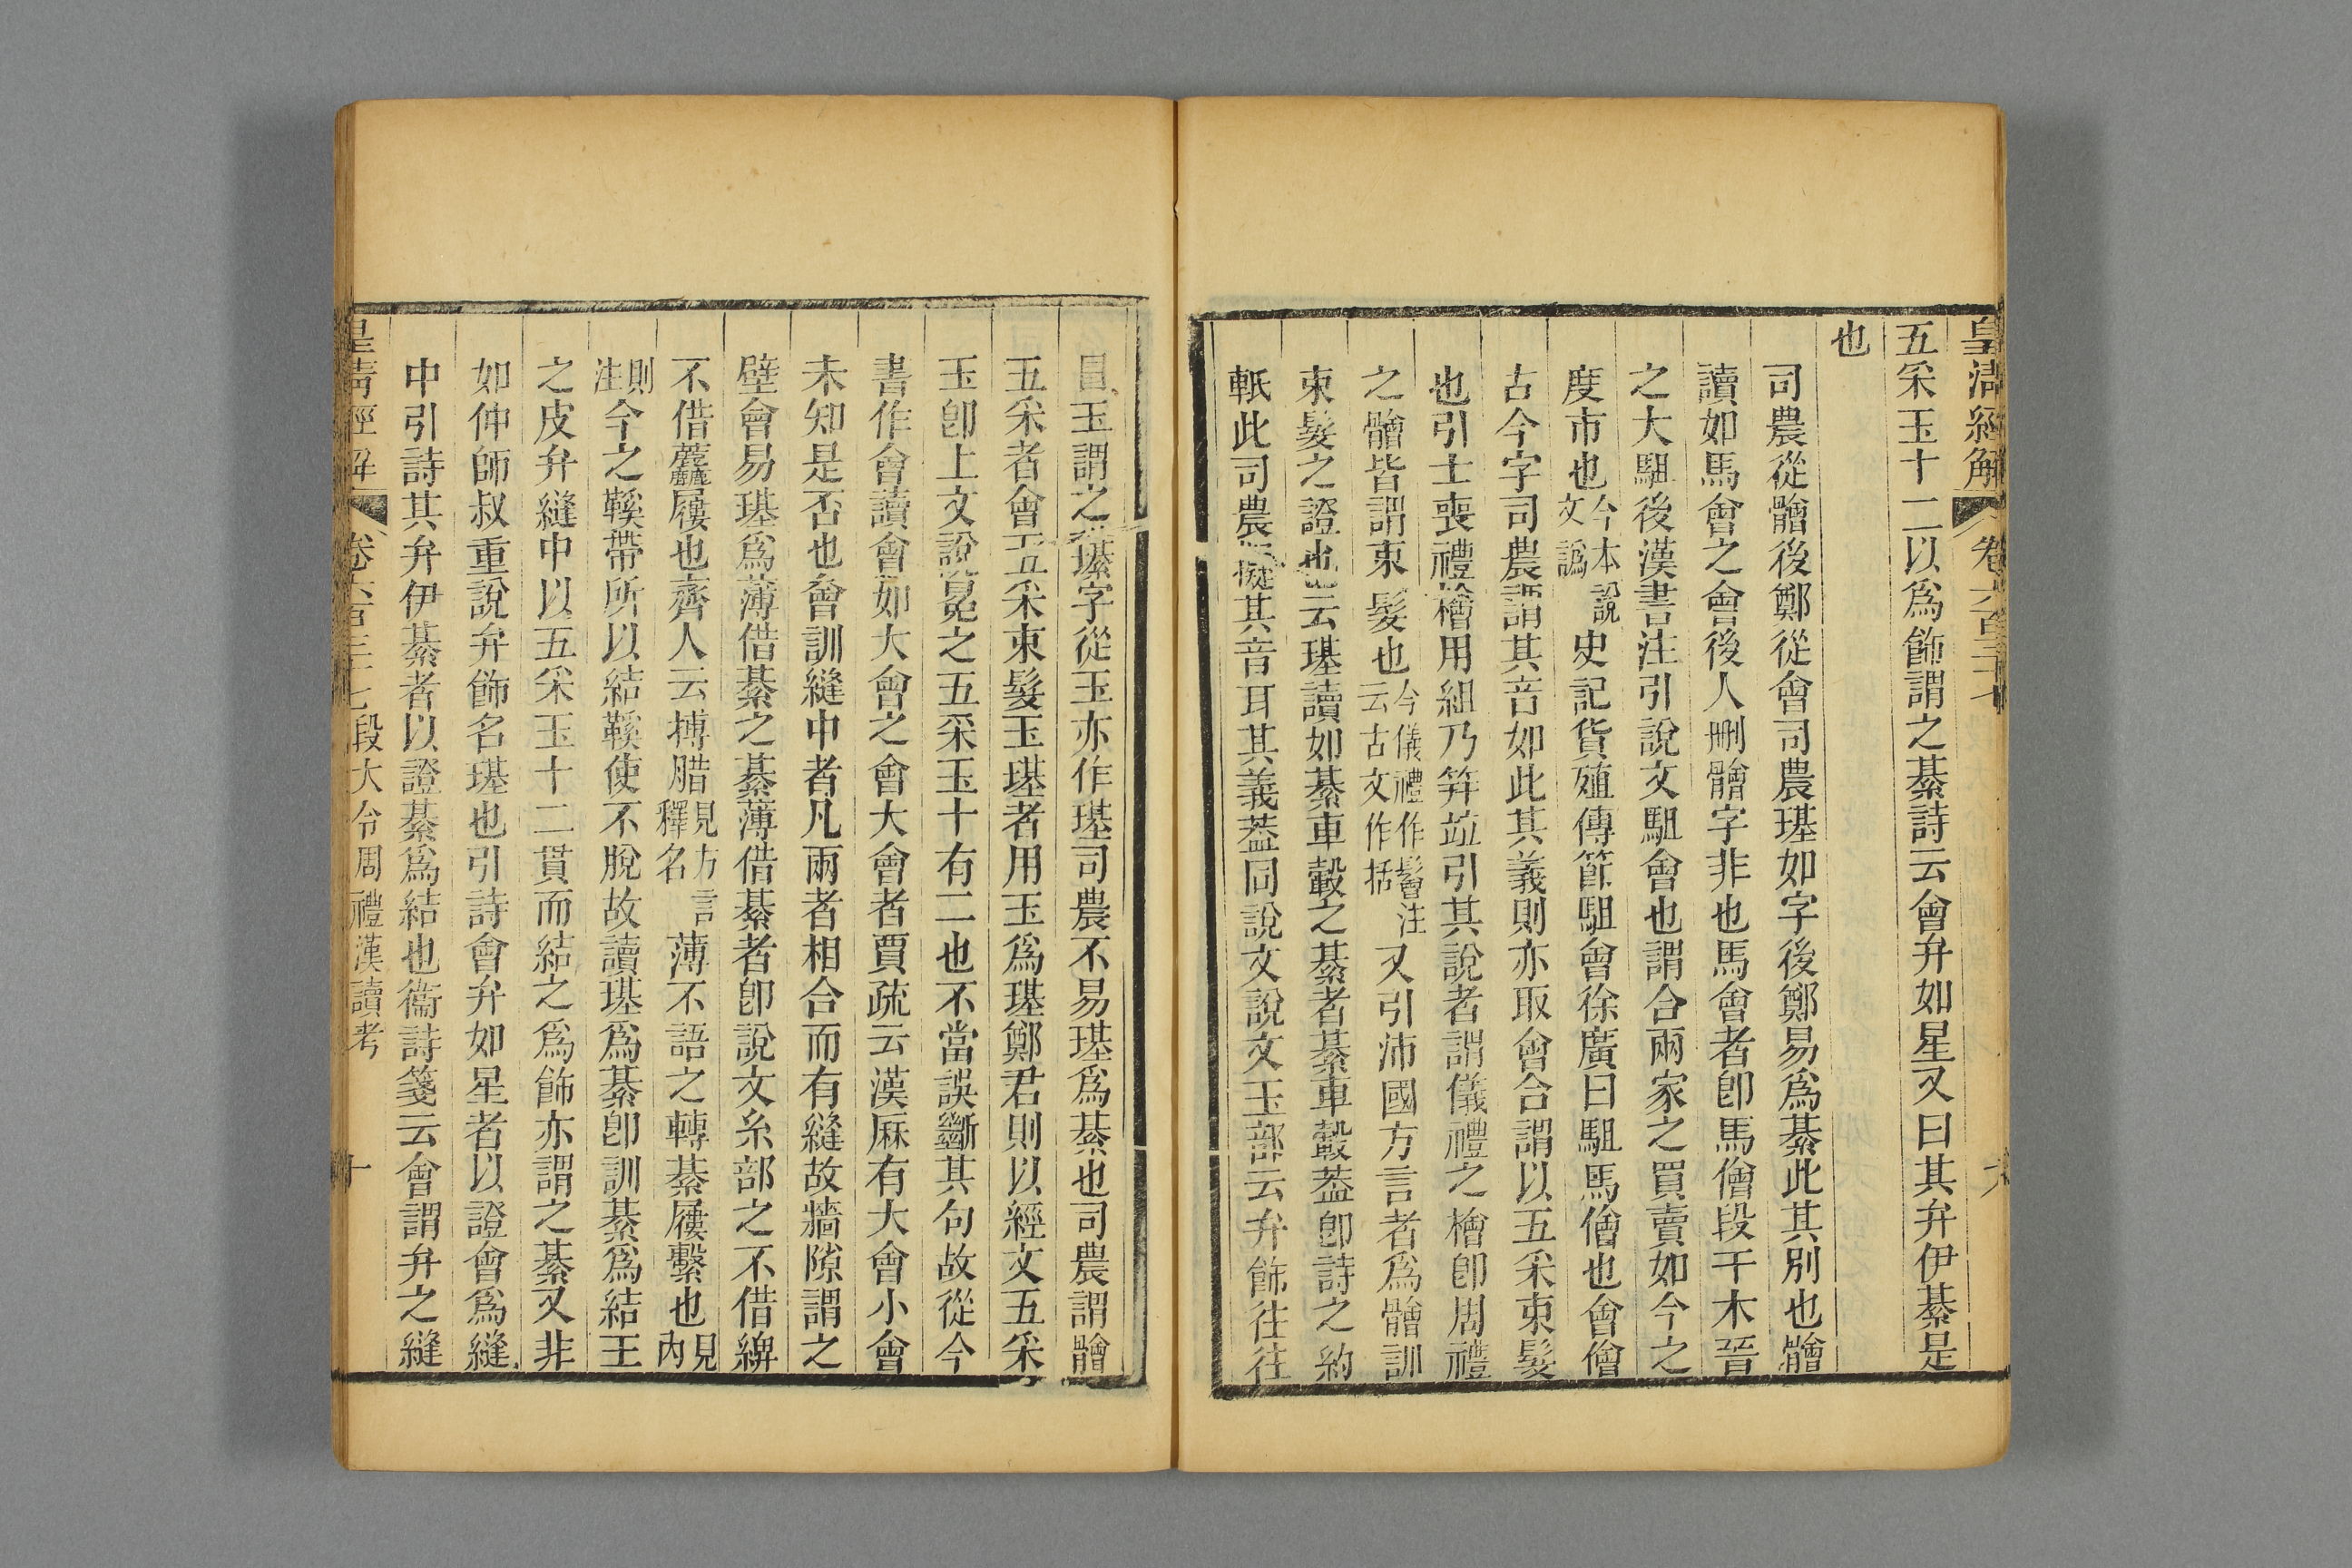 皇清經解 卷六百三十七
五采玉十二以爲飾謂之綦詩云會弁如星又曰其弁伊綦是
也
司農從䯤後鄭從會司農璂如字後鄭易爲綦此其別也䯤
讀如馬會之會後人刪䯤字非也馬會者卽馬儈段干木晉
之大駔後漢書注引說文駔會也謂合兩家之買賣如今之
度市也今本說文譌史記貨殖傳節駔會徐廣曰駔馬儈也會儈
古今字司農謂其音如此其義則亦取會合謂以五采束髮
也引士喪禮檜用組乃笄竝引其說者謂儀禮之檜卽周禮
之䯤皆謂束髮也今儀禮作鬠注云古文作括又引沛國方言者爲䯤訓
束髮之證也云璂讀如綦車轂之綦者綦車轂蓋卽詩之約
軧此司農擬其音耳其義蓋同說文說文玉部云弁飾往往
冒玉謂之瑧字從玉亦作璂司農不易璂爲綦也司農謂䯤
五采者會五采束髮玉璂者用玉爲璂鄭君則以經文五采
玉卽上文說冕之五采玉十有二也不當誤斷其句故從今
書作會讀會如大會之會大會者賈疏云漢厤有大會小會
未知是否也會訓縫中者凡兩者相合而有縫故牆隙謂之
壁會易璂爲薄借綦之綦薄借綦者卽說文糸部之不借綼
不借麤屨也齊人云搏腊見方言釋名薄不語之轉綦屨繫也見內
則注今之鞵帶所以結鞵使不脫故讀璂爲綦卽訓綦爲結王
之皮弁縫中以五采玉十二貫而結之爲飾亦謂之綦又非
如仲師叔重說弁飾名璂也引詩會弁如星者以證會爲縫
中引詩其弁伊綦者以證綦爲結也衞詩箋云會謂弁之縫
皇清經解 卷六百三十七 段大令周禮漢讀考 十